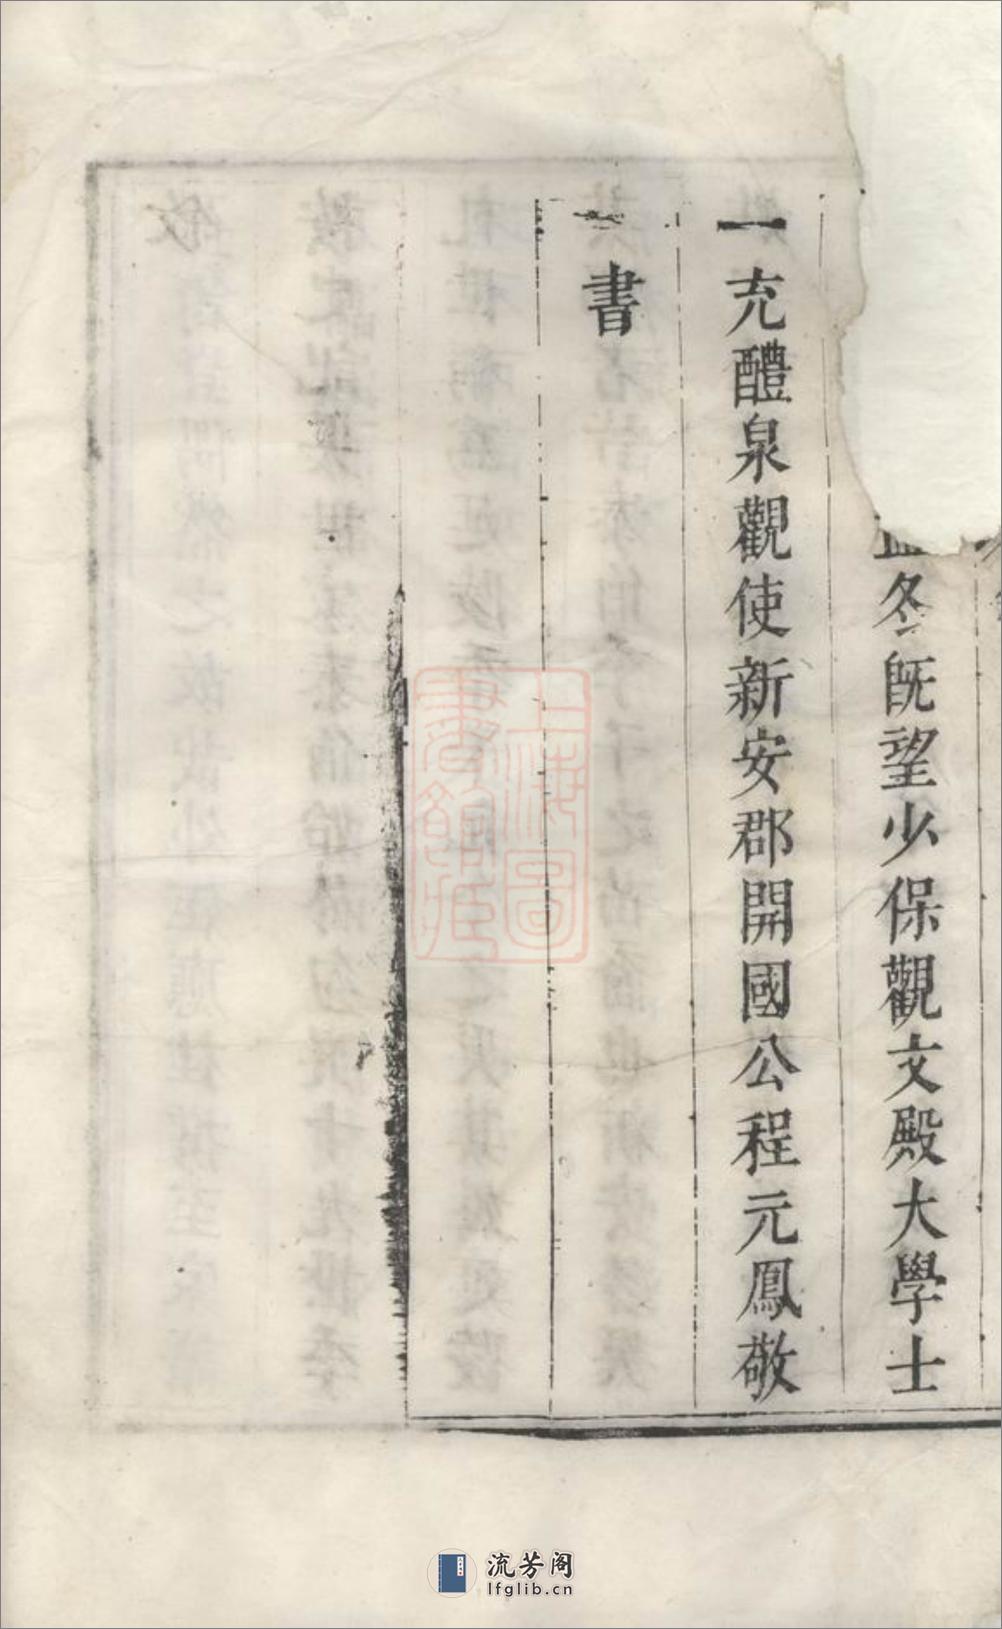 冬既望少保觀文殿大學士
一充醴泉觀使新安郡開國公程元鳳敬
書
上海圖書館藏
流芳阁
lfglib.cn